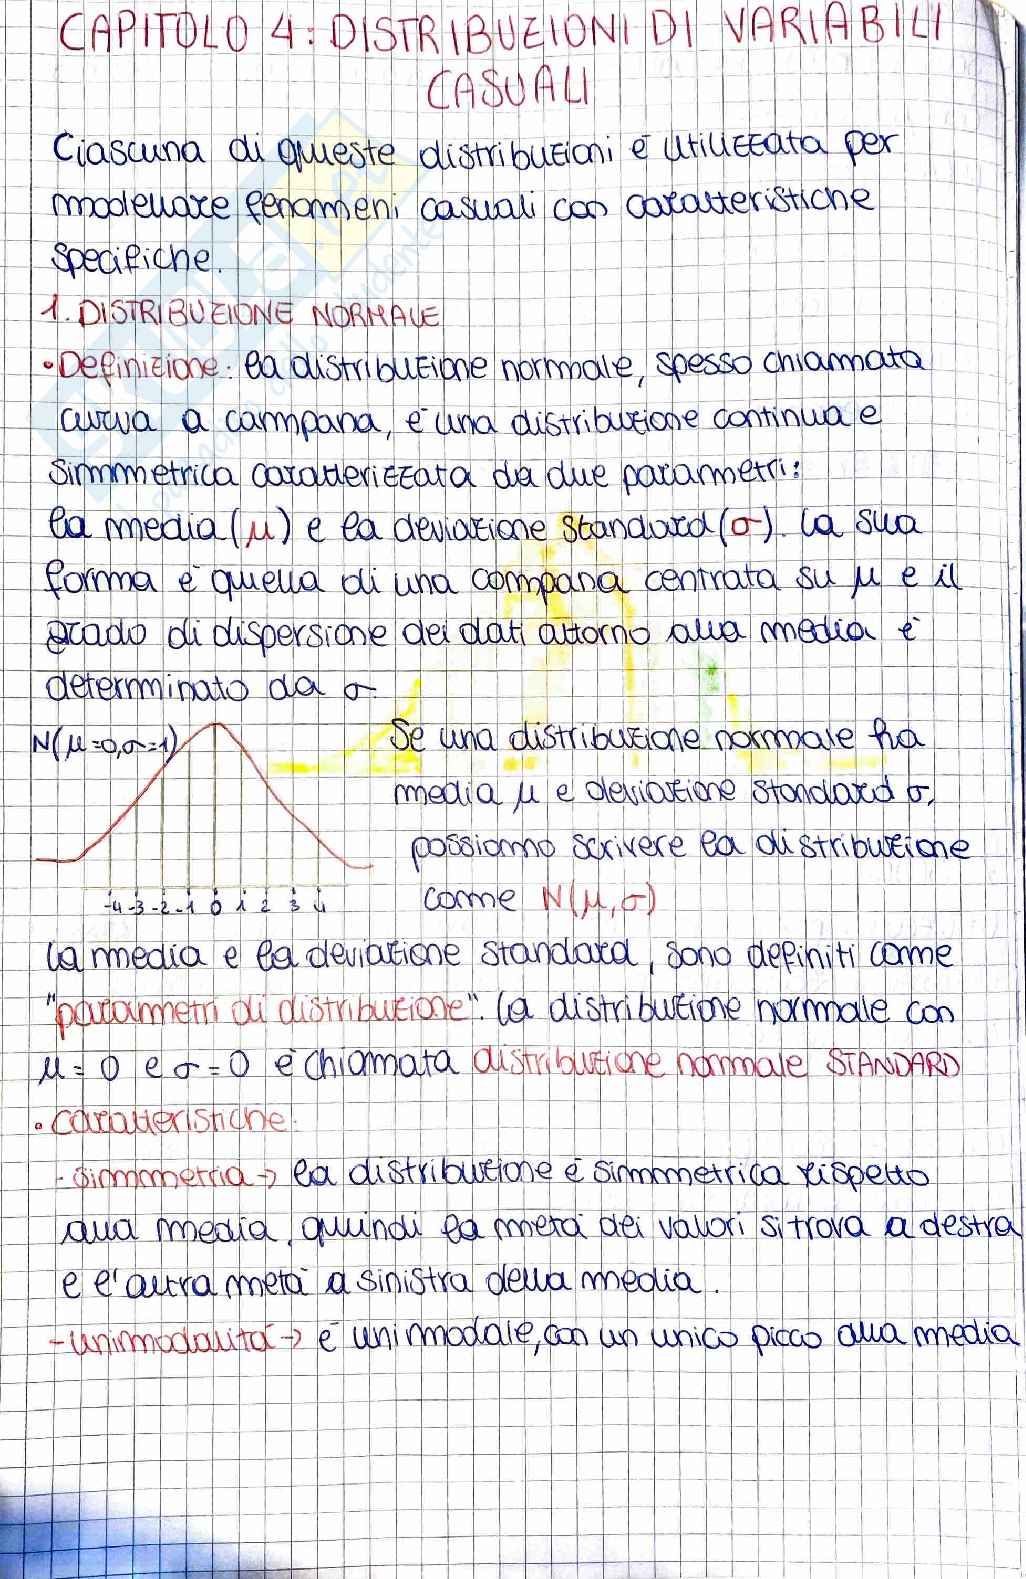 CAPITOLO 4: DISTRIBUZIONI DI VARIABILI
CASUALI
Ciascuna di queste distribuzioni è utilizzata per
modellare fenomeni casuali con caratteristiche
specifiche.
1. DISTRIBUZIONE NORMALE
•Definizione: la distribuzione normale, spesso chiamata
curva a campana, è una distribuzione continua e
simmetrica caratterizzata da due parametri:
la media (μ) e la deviazione standard (σ). La sua
forma è quella di una campana centrata su μ e il
grado di dispersione dei dati attorno alla media è
determinato da σ
N(μ=0,σ=1)
-4 -3 -2 -1 0 1 2 3 4
Se una distribuzione normale ha
media μ e deviazione standard σ,
possiamo scrivere la distribuzione
come N(μ,σ)
La media e la deviazione standard, sono definiti come
"parametri di distribuzione". La distribuzione normale con
μ=0 e σ=0 è chiamata distribuzione normale STANDARD
•Caratteristiche:
-simmetria→ la distribuzione è simmetrica rispetto
alla media, quindi la metà dei valori si trova a destra
e l'altra metà a sinistra della media.
-unimodalità→ è unimodale, con un unico picco alla media